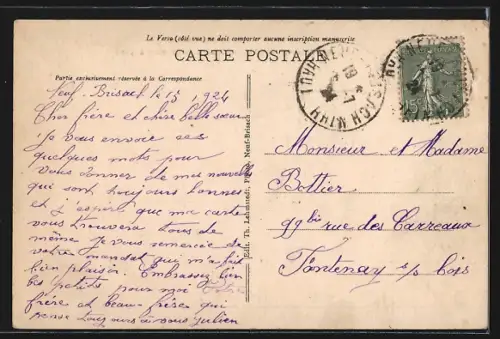 Le Verso (côté vue) ne doit comporter aucune inscription manuscrite
CARTE POSTALE
Partie exclusivement réservée à la Correspondance
Neuf-Brisach le 15 1924
Cher frère et chère belle sœur
Je vous envoie ces
quelques mots pour
vous donner de mes nouvelles
qui sont toujours bonnes
et j'espère que ma carte
vous trouvera tous de
même je vous remercie de
votre mandat qui m'a fait
bien plaisir. Embrassez bien
les petits pour moi
frère et beau frère qui
pense toujours à vous Julien
Edit. Th. Neuf-Brisach
NEUF-BRISACH
HAUT-RHIN
15c
Monsieur et Madame
Bottier
99 bis rue des Carreaux
Fontenay s/s bois